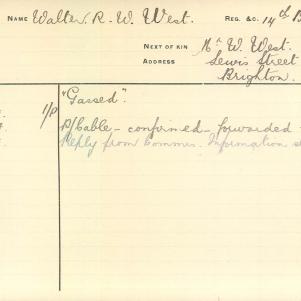 NAME Walter. R. W. West. REG. &C. 14th B
NEXT OF KIN Mr W. West.
ADDRESS Lewis Street
Brighton.
1/P "Gassed".
P/Cable - confirmed - forwarded
Reply from Commns. Information s